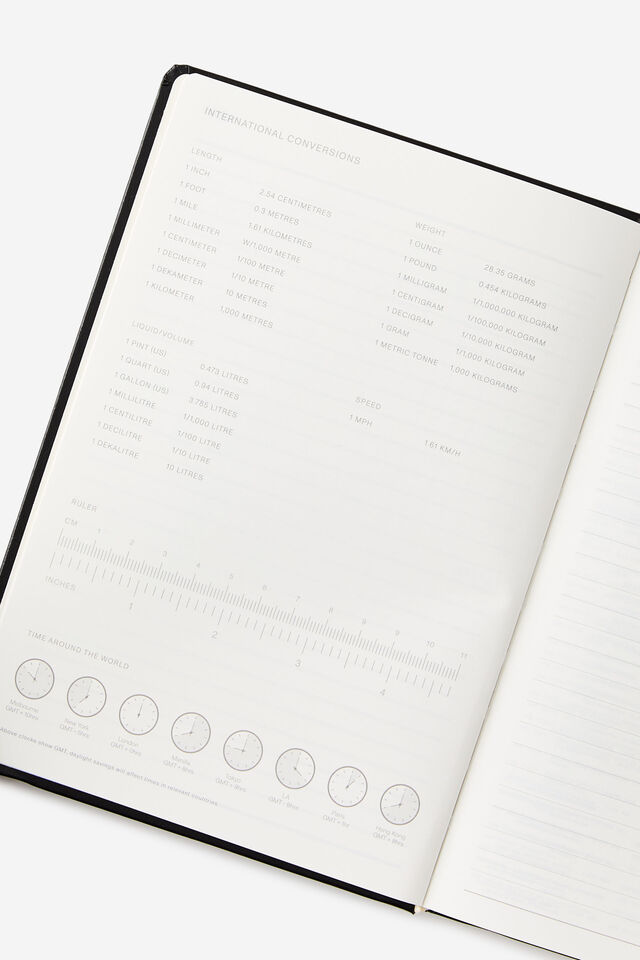 INTERNATIONAL CONVERSIONS
LENGTH
1 INCH 2.54 CENTIMETRES
1 FOOT 0.3 METRES
1 MILE 1.61 KILOMETRES
1 MILLIMETER W/1,000 METRE
1 CENTIMETER 1/100 METRE
1 DECIMETER 1/10 METRE
1 DEKAMETER 10 METRES
1 KILOMETER 1,000 METRES
WEIGHT
1 OUNCE 28.35 GRAMS
1 POUND 0.454 KILOGRAMS
1 MILLIGRAM 1/1,000,000 KILOGRAM
1 CENTIGRAM 1/100.000 KILOGRAM
1 DECIGRAM 1/10,000 KILOGRAM
1 GRAM 1/1,000 KILOGRAM
1 METRIC TONNE 1,000 KILOGRAMS
LIQUID/VOLUME
1 PINT (US) 0.473 LITRES
1 QUART (US) 0.94 LITRES
1 GALLON (US) 3.785 LITRES
1 MILLILITRE 1/1,000 LITRE
1 CENTILITRE 1/100 LITRE
1 DECILITRE 1/10 LITRE
1 DEKALITRE 10 LITRES
SPEED
1 MPH 1.61 KM/H
RULER
CM 1 2 3 4 5 6 7 8 9 10 11
INCHES 1 2 3 4
TIME AROUND THE WORLD
Melbourne
GMT + 10hrs
New York
GMT - 5hrs
London
GMT + 0hrs
Manila
GMT + 8hrs
Tokyo
GMT + 9hrs
LA
GMT - 8hrs
Paris
GMT + 1hr
Hong Kong
GMT + 8hrs
Above clocks show GMT, daylight savings will affect times in relevant countries.